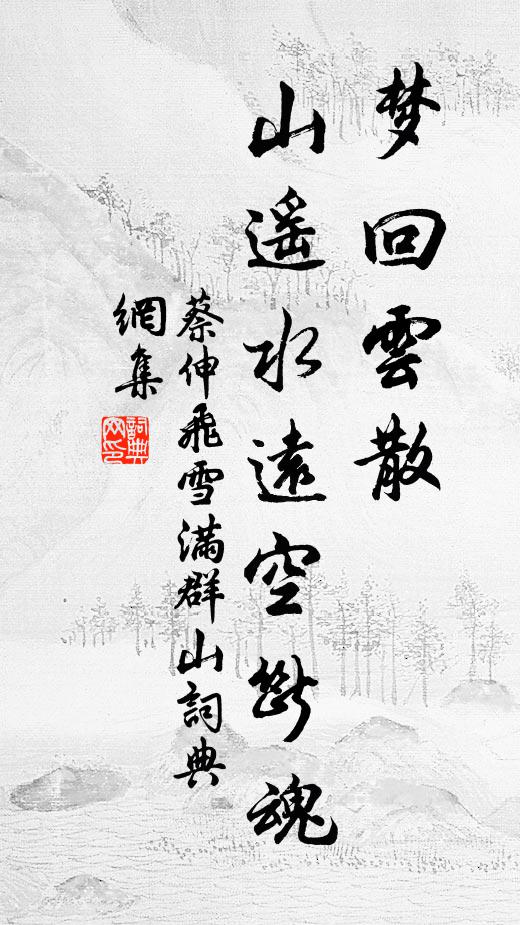 梦回雲散
山遥水遠空斷魂
蔡伸飛雪满群山詞典
網集
詞典
网印